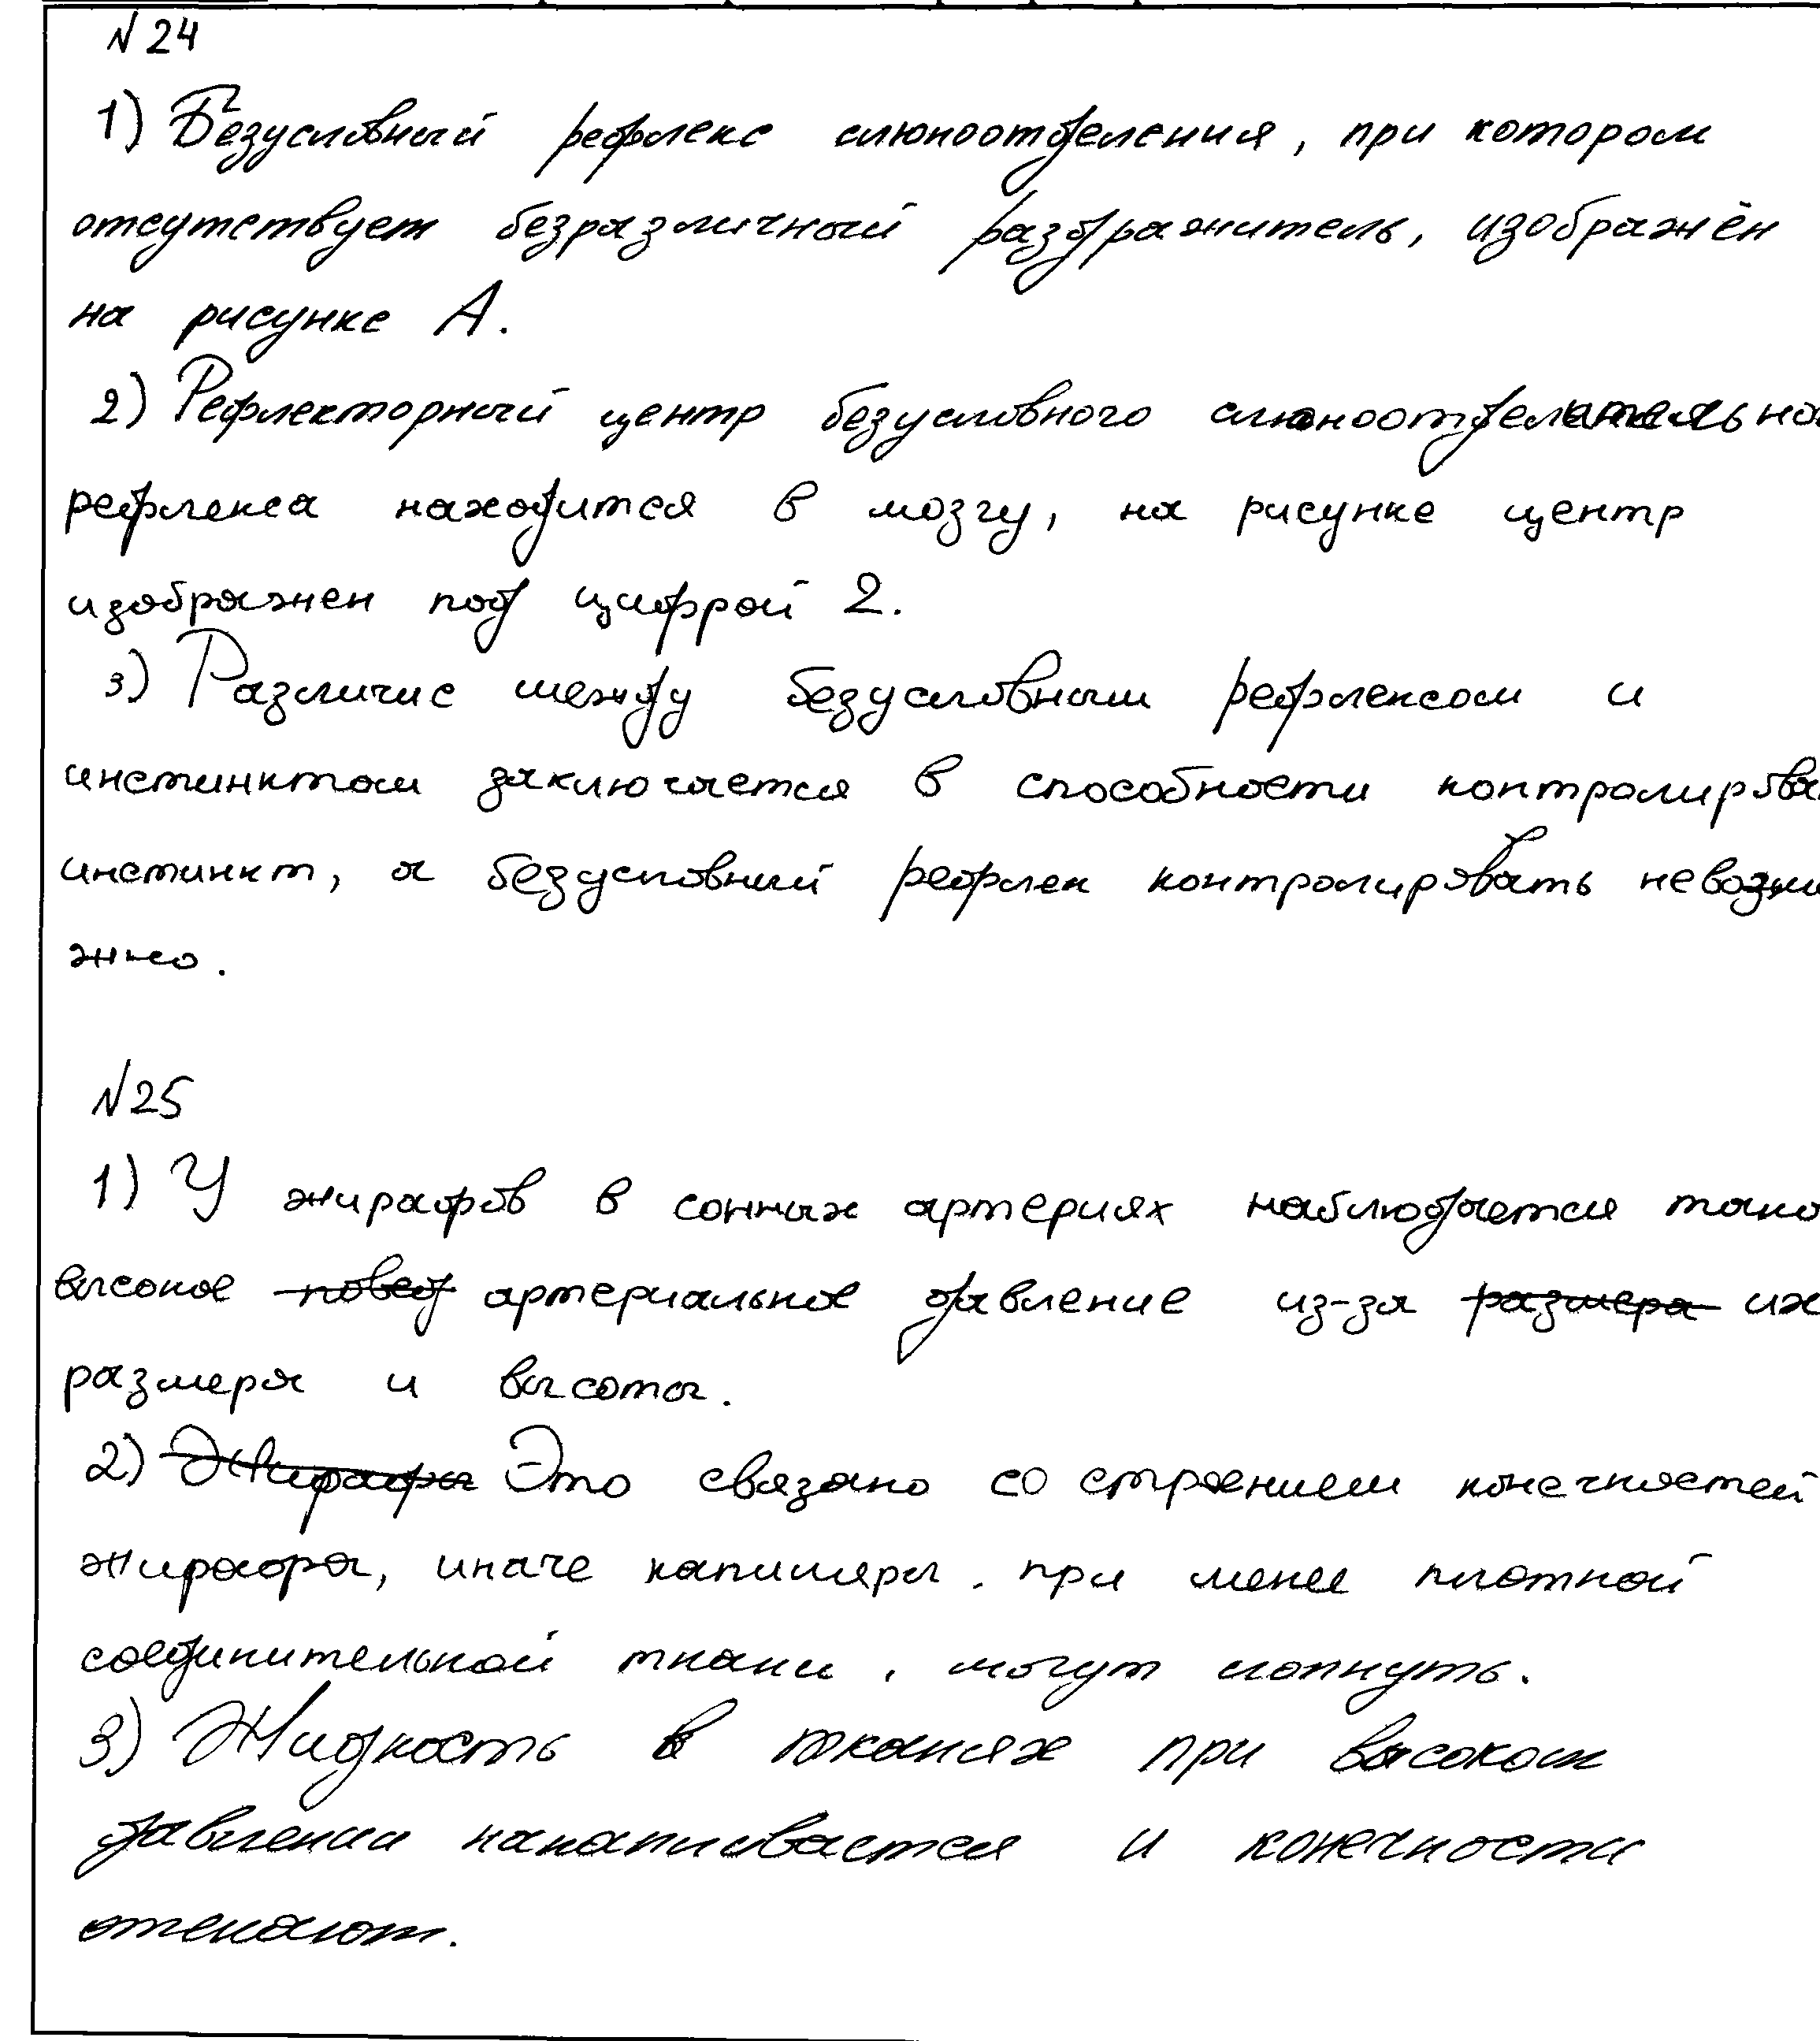 N 24
1) Безусловный рефлекс слюноотделения, при котором
отсутствует безразличный раздражитель, изображён
на рисунке А.
2) Рефлекторный центр безусловного слюноотделительно
рефлекса находится в мозгу, на рисунке центр
изображен под цифрой 2.
3) Различие между безусловным рефлексом и
инстинктом заключается в способности контролирова
инстинкт, а безусловный рефлек контролировать невозмо
жно.
N25
1) У жирафов в сонных артериях наблюдается тако
высокое повед артериальное давление из-за размера их
размера и высоты.
2) Жирафы Это связано со строением конечностей
жирафа, иначе капиляры, при менее плотной
соединительной ткани, могут лопнуть.
3) Жидкость в тканях при высоком
давлении накапливается и конечности
отекают.